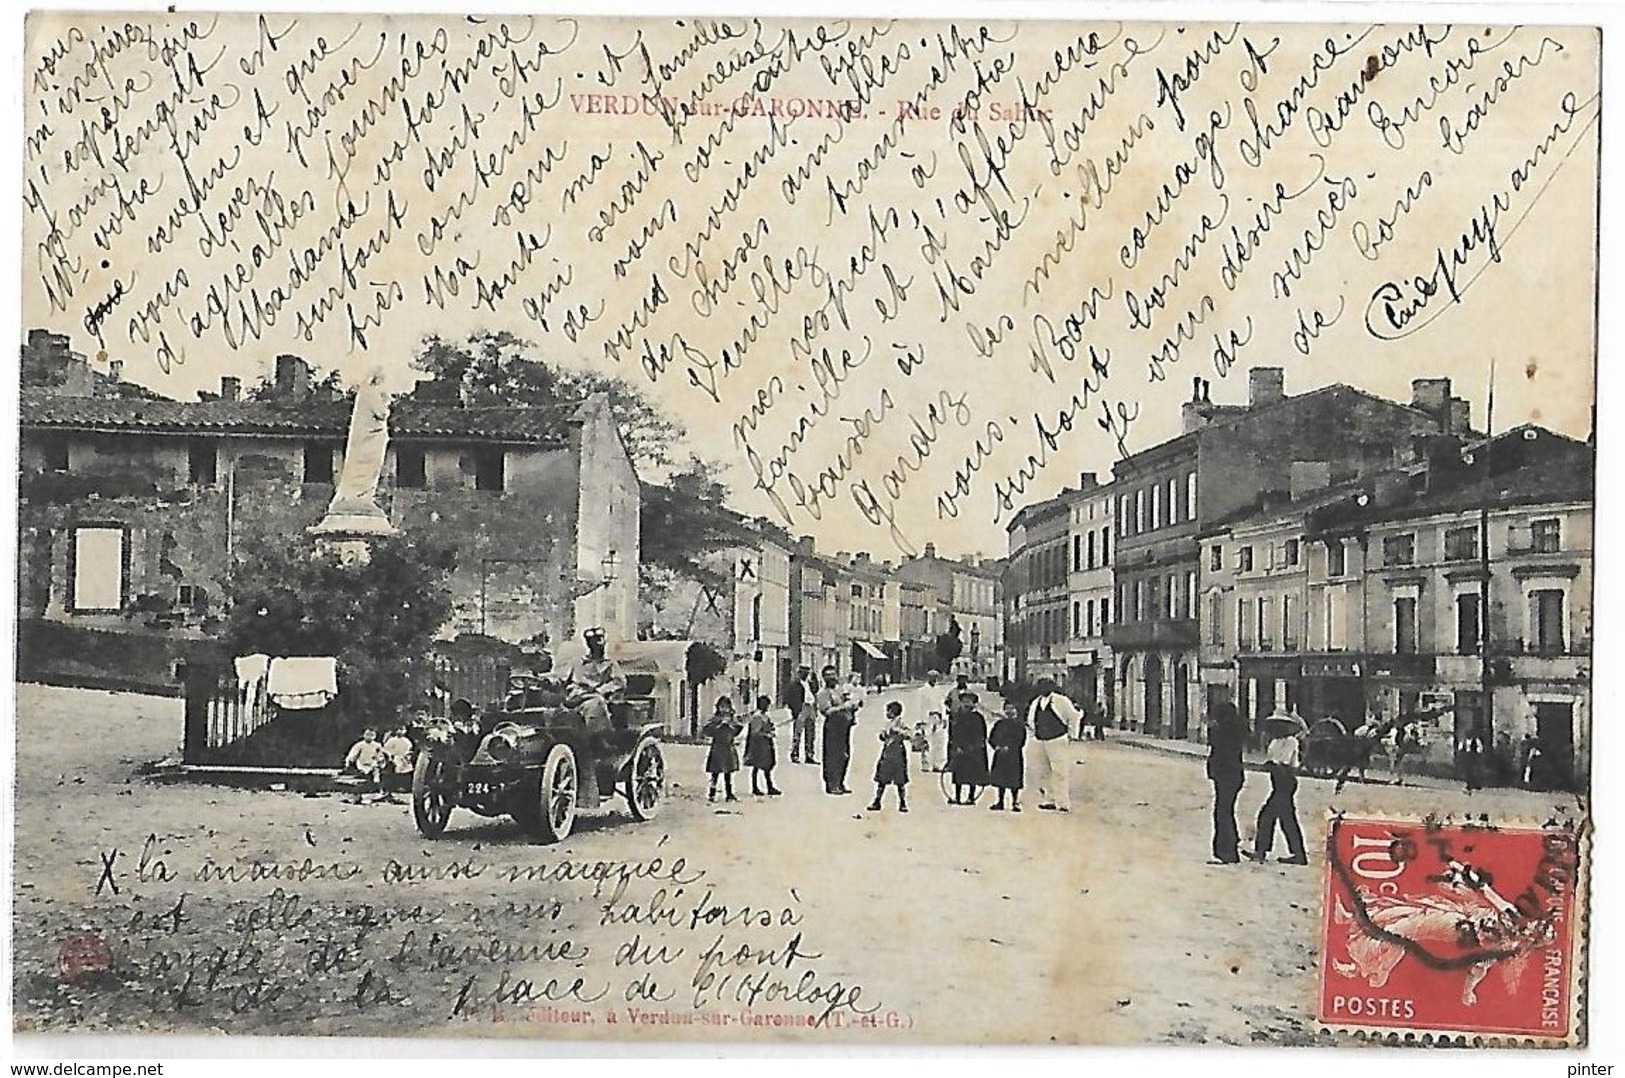 vous
m'inspirez
J'espère que
maintenant
Mr votre frère est
revenu et que
vous devez passer
d'agréables journées
Madame votre mère
surtout doit-être
très contente. et
Ma sœur
toute ma famille
qui serait heureuse
de vous connaitre
vous envoient bien
des choses aimables.
Veuillez transmettre
mes respects à votre
famille et d'affectueux
baisers à Marie-Louise.
Gardez les meilleurs pour
vous. Bon courage et
surtout bonne chance.
Je vous désire beaucoup
de succès. Encore
de bons baisers
Puyanne
VERDUN-sur-GARONNE. - Rue du
X X
224-
X la maison ainsi marquée
est celle que nous habitons à
l'angle de l'avenue du pont
et de la place de l'Horloge
éditeur, à Verdun-sur-Garonne (T.-et-G.)
10 c
POSTES
FRANÇAISE
www.delcampe.net
pinter